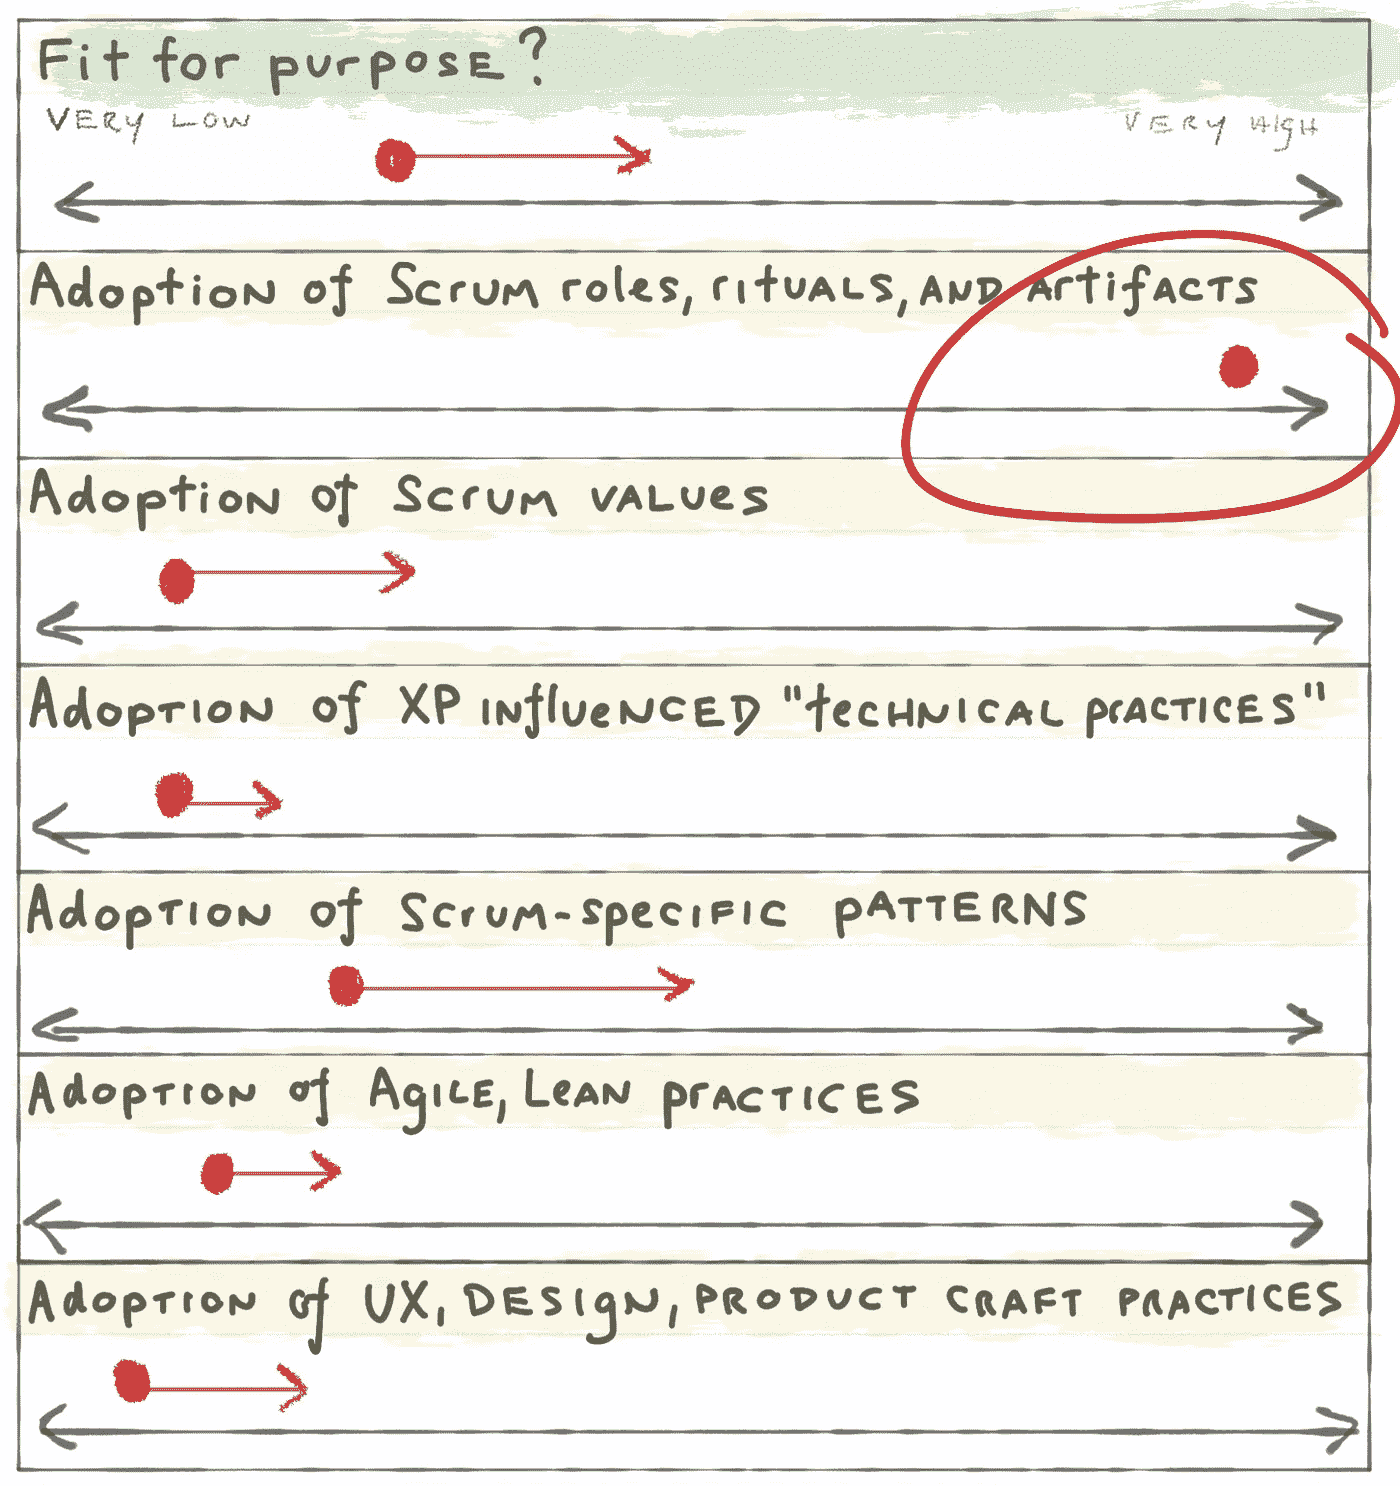 Fit for purpose?
VERY LOW
VERY HIGH
Adoption of Scrum roles, rituals, and artifacts
Adoption of Scrum values
Adoption of XP influenced "technical practices"
Adoption of Scrum-specific patterns
Adoption of Agile, Lean practices
Adoption of UX, Design, Product Craft Practices